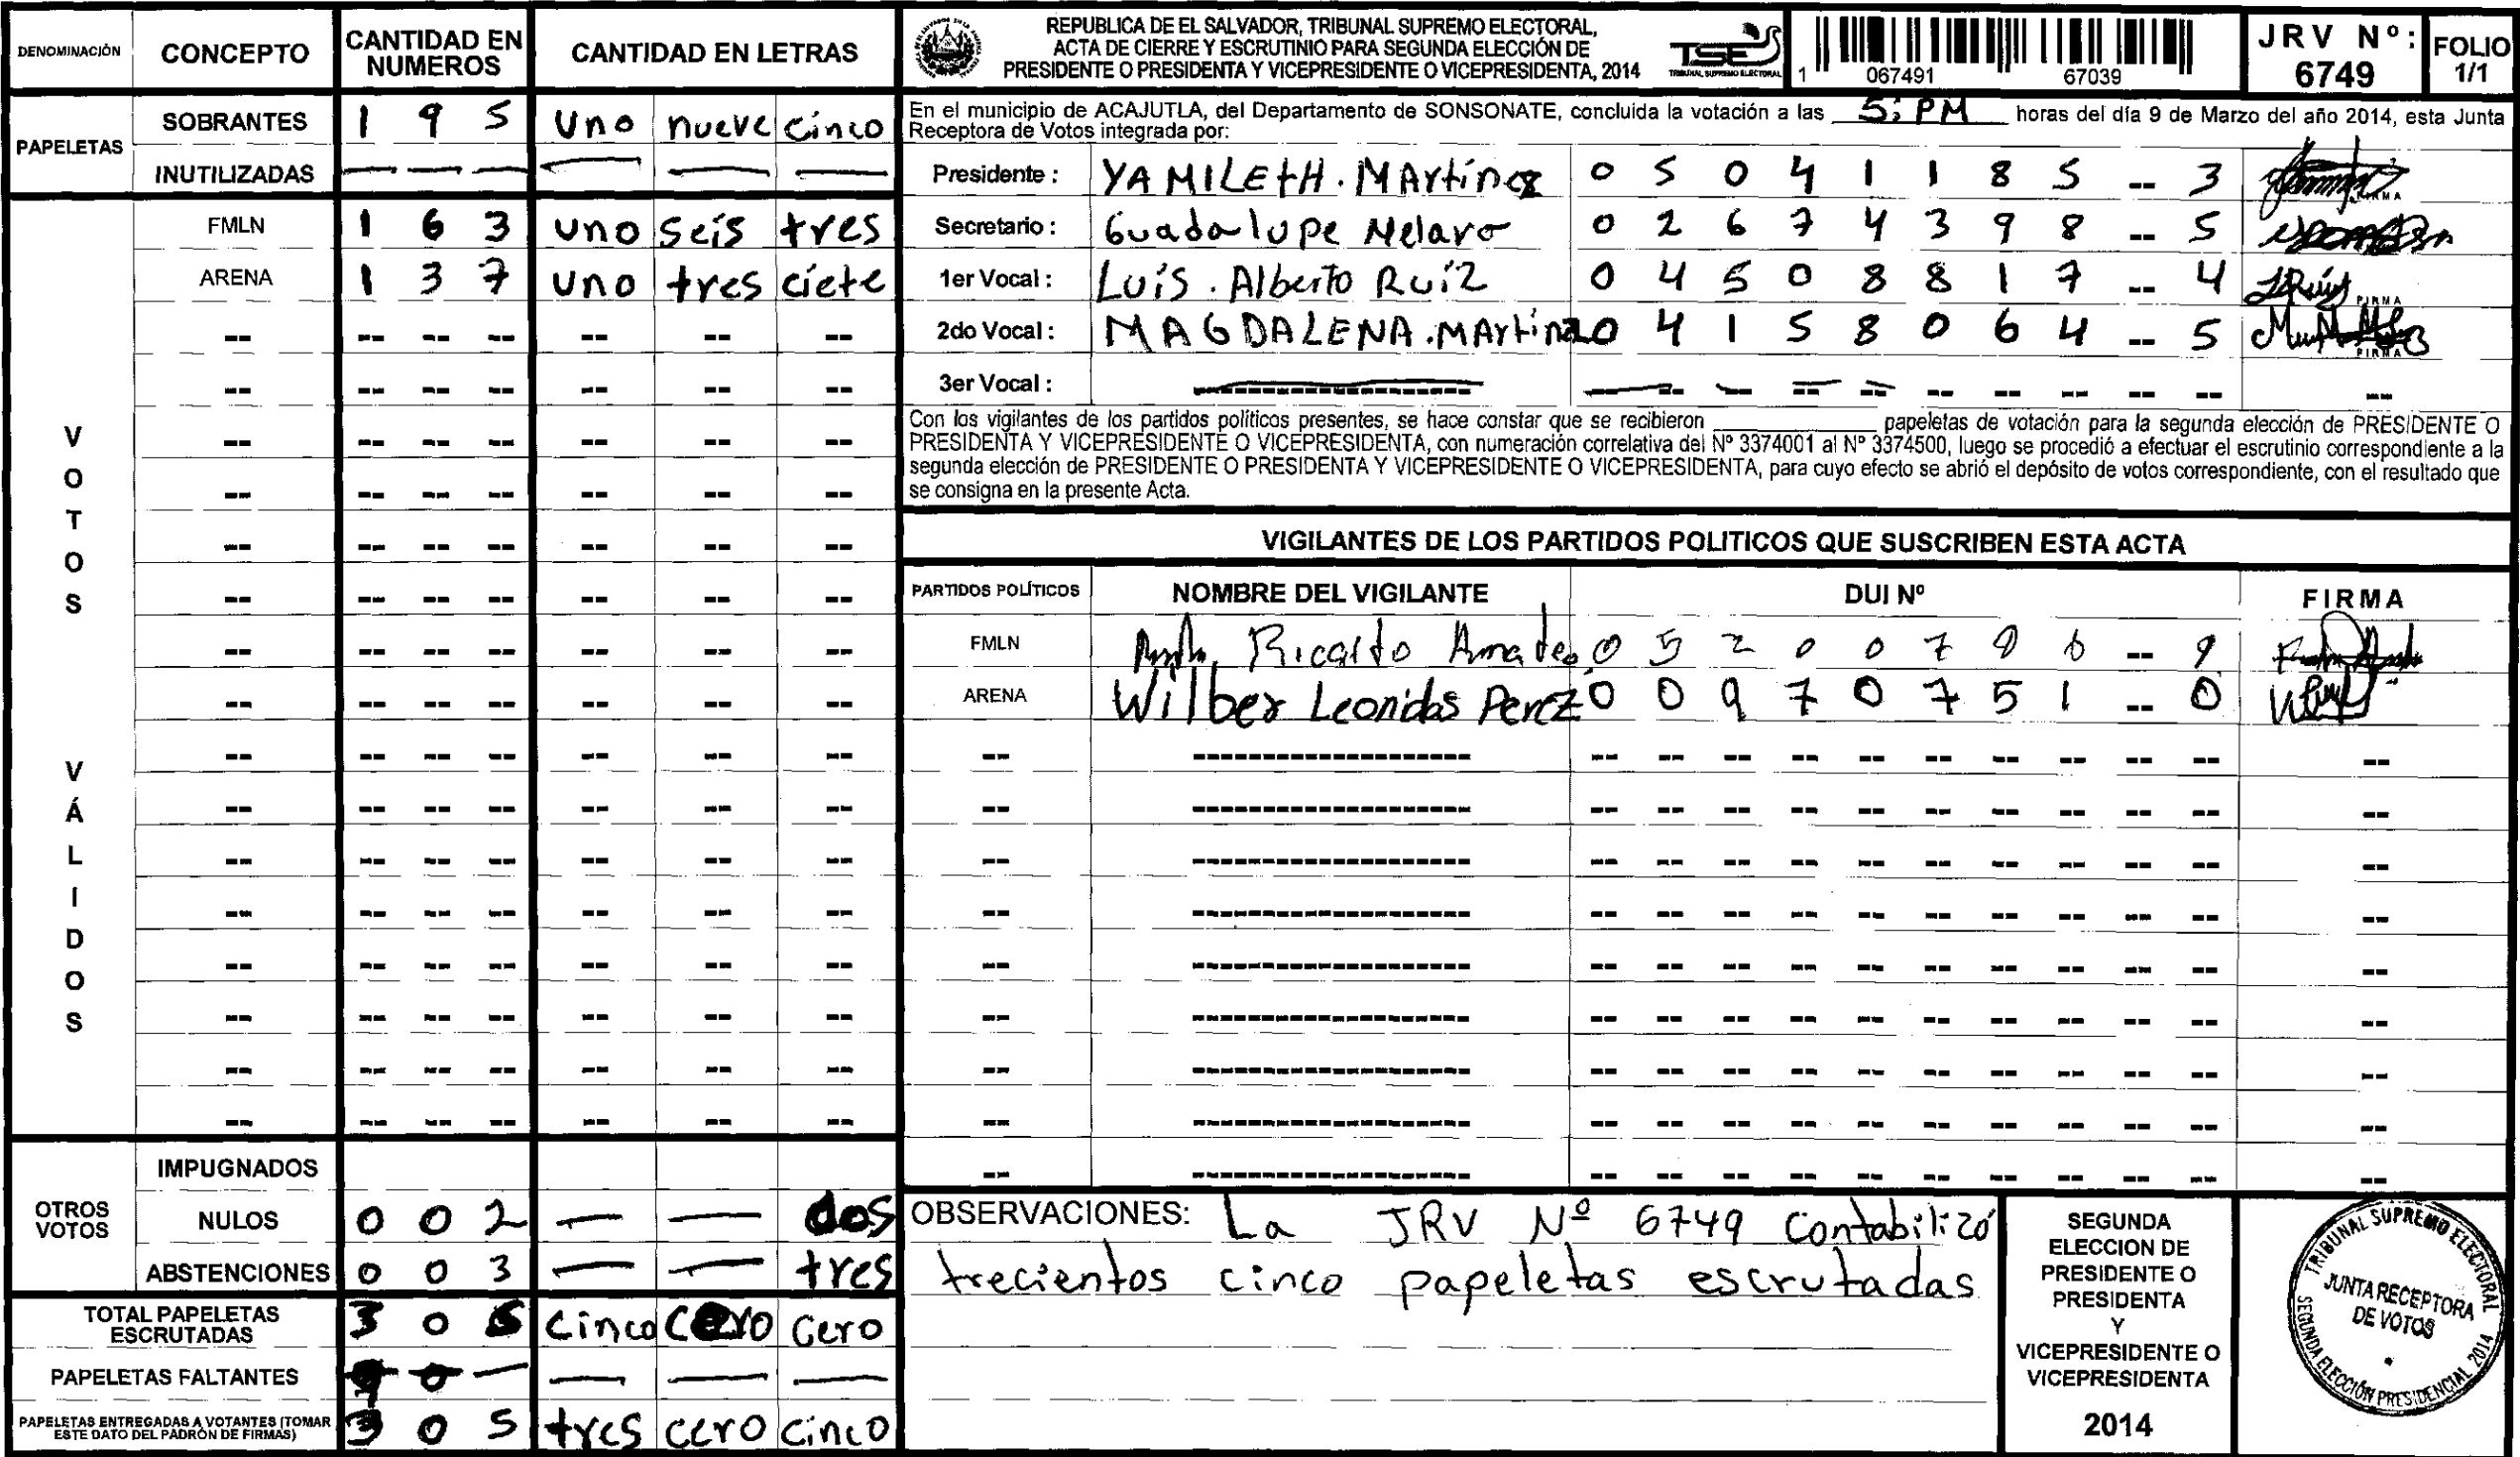 DENOMINACIÓN CONCEPTO CANTIDAD EN NUMEROS CANTIDAD EN LETRAS
PAPELETAS
SOBRANTES 1 9 5 uno nueve cinco
INUTILIZADAS — — — — — —
VOTOS VÁLIDOS
FMLN 1 6 3 uno seis tres
ARENA 1 3 7 uno tres ciete
OTROS VOTOS
IMPUGNADOS
NULOS 0 0 2 — — dos
ABSTENCIONES 0 0 3 — — tres
TOTAL PAPELETAS ESCRUTADAS 3 0 5 cinco cero cero
PAPELETAS FALTANTES — — —
PAPELETAS ENTREGADAS A VOTANTES (TOMAR ESTE DATO DEL PADRÓN DE FIRMAS) 3 0 5 tres cero cinco
REPUBLICA DE EL SALVADOR, TRIBUNAL SUPREMO ELECTORAL,
ACTA DE CIERRE Y ESCRUTINIO PARA SEGUNDA ELECCIÓN DE
PRESIDENTE O PRESIDENTA Y VICEPRESIDENTE O VICEPRESIDENTA, 2014
TSE
TRIBUNAL SUPREMO ELECTORAL
1 067491 67039
JRV Nº: 6749
FOLIO 1/1
En el municipio de ACAJUTLA, del Departamento de SONSONATE, concluida la votación a las 5: PM horas del día 9 de Marzo del año 2014, esta Junta
Receptora de Votos integrada por:
Presidente : YAMILEtH. MArtínez 0 5 0 4 1 1 8 5 -- 3
Secretario : Guadalupe Melara 0 2 6 7 4 3 9 8 -- 5
1er Vocal : Luís. Alberto Ruíz 0 4 5 0 8 8 1 7 -- 4 FIRMA
2do Vocal : MAGDALENA. MArtinez 0 4 1 5 8 0 6 4 -- 5 FIRMA
3er Vocal :
Con los vigilantes de los partidos políticos presentes, se hace constar que se recibieron ____ papeletas de votación para la segunda elección de PRESIDENTE O
PRESIDENTA Y VICEPRESIDENTE O VICEPRESIDENTA, con numeración correlativa del Nº 3374001 al Nº 3374500, luego se procedió a efectuar el escrutinio correspondiente a la
segunda elección de PRESIDENTE O PRESIDENTA Y VICEPRESIDENTE O VICEPRESIDENTA, para cuyo efecto se abrió el depósito de votos correspondiente, con el resultado que
se consigna en la presente Acta.
VIGILANTES DE LOS PARTIDOS POLITICOS QUE SUSCRIBEN ESTA ACTA
PARTIDOS POLÍTICOS NOMBRE DEL VIGILANTE DUI Nº FIRMA
FMLN Ricardo Amadeo
ARENA Wilber Leonidas Perez 0 0 9 7 0 7 5 1 -- 0
OBSERVACIONES: La JRV Nº 6749 Contabilizó
trecientos cinco papeletas escrutadas
SEGUNDA
ELECCION DE
PRESIDENTE O
PRESIDENTA
Y
VICEPRESIDENTE O
VICEPRESIDENTA
2014
TRIBUNAL SUPREMO ELECTORAL
JUNTA RECEPTORA
DE VOTOS
SEGUNDA ELECCIÓN PRESIDENCIAL 2014